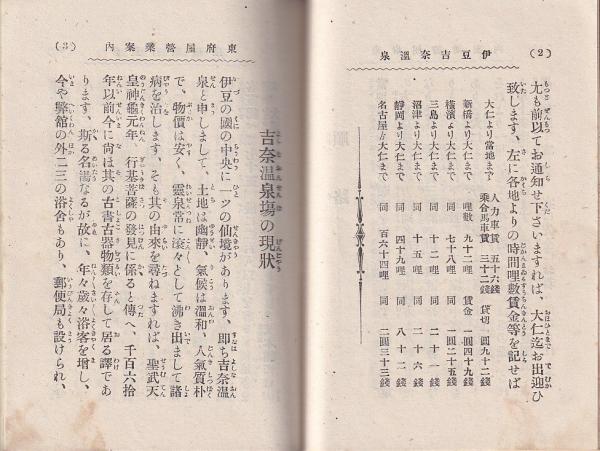 (2) 伊豆吉奈溫泉
尤も前以てお通知せ下さいますれば、大仁迄お出迎ひ
致します、左に各地よりの時間哩數賃金等を記せば
大仁より當地まで 人力車賃 五十六錢 貸切 一圓九十二錢
乘合馬車賃 三十二錢
新橋より大仁まで 哩數 九十二哩 賃金 一圓四十九錢
橫濱より大仁まで 同 七十八哩 同 一圓二十五錢
三島より大仁まで 同 十二哩 同 二十一錢
沼津より大仁まで 同 十五哩 同 二十六錢
靜岡より大仁まで 同 四十九哩 同 八十二錢
名古屋より大仁まで 同 百六十四哩 同 二圓三十三錢
東府屋營業案內 (3)
吉奈溫泉塲の現狀
伊豆の國の中央に一ツの仙境があります、即ち吉奈溫
泉と申しまして、土地は幽靜、氣候は溫和、人氣質朴
で、物價は安く、靈泉常に滾々として沸き出まして諸
病を治します、そも其の由來を尋ねますれば、聖武天
皇神龜元年、行基菩薩の發見に係ると傳へ、千百六拾
年以前今に尙は其の古書古器物類を存して居る譯であ
ります、斯る名湯なるが故に、年々歲々浴客を增し、
今や弊館の外二三の浴舍もあり、郵便局も設けられ、